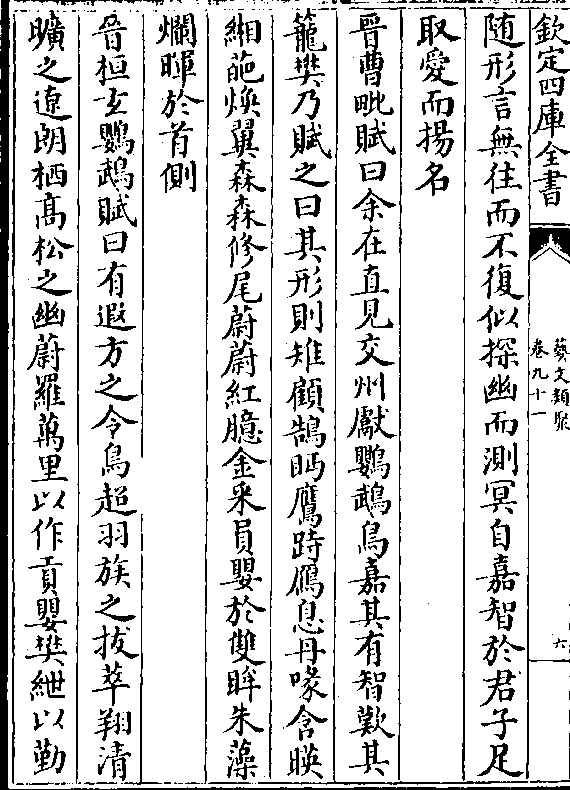 欽定四庫全書
藝文類聚
卷九十一
六
随形言無往而不復似探幽而測冥自嘉智於君子足
取愛而揚名
晉曹毗賦曰余在直見交州獻鸚鵡鳥嘉其有智歎其
籠樊乃賦之曰其形則雉顧鵠眄鷹跱鴈息丹喙含暎
緗葩煥翼森森修尾蔚蔚紅臆金采員嬰於雙眸朱藻
爛暉於首側
晉桓玄鸚鵡賦曰有遐方之令鳥超羽族之拔萃翔清
曠之遼朗栖髙松之幽蔚羅萬里以作貢嬰樊紲以勤